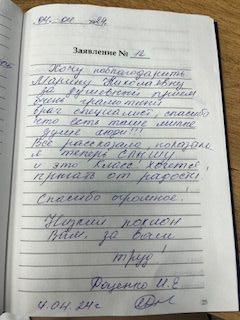 04. 04 2024
Заявление № 12
Хочу поблагодарить
Марину Николаевну
за душевный прием
очень грамотный
врач специалист, спасибо
что есть такие милые
люди!!!
Всё рассказала, показала
я теперь слышу
и это класс! Хочется
прыгать от радости!
Спасибо огромное!
Низкий поклон
Вам, за Ваш
труд!
Фоценко И. Е.
4.04.24г